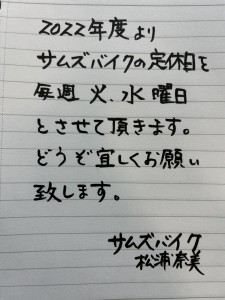 2022年度より
サムズバイクの定休日を
毎週 火、水曜日
とさせて頂きます。
どうぞ宜しくお願い
致します。
サムズバイク
松浦奈美